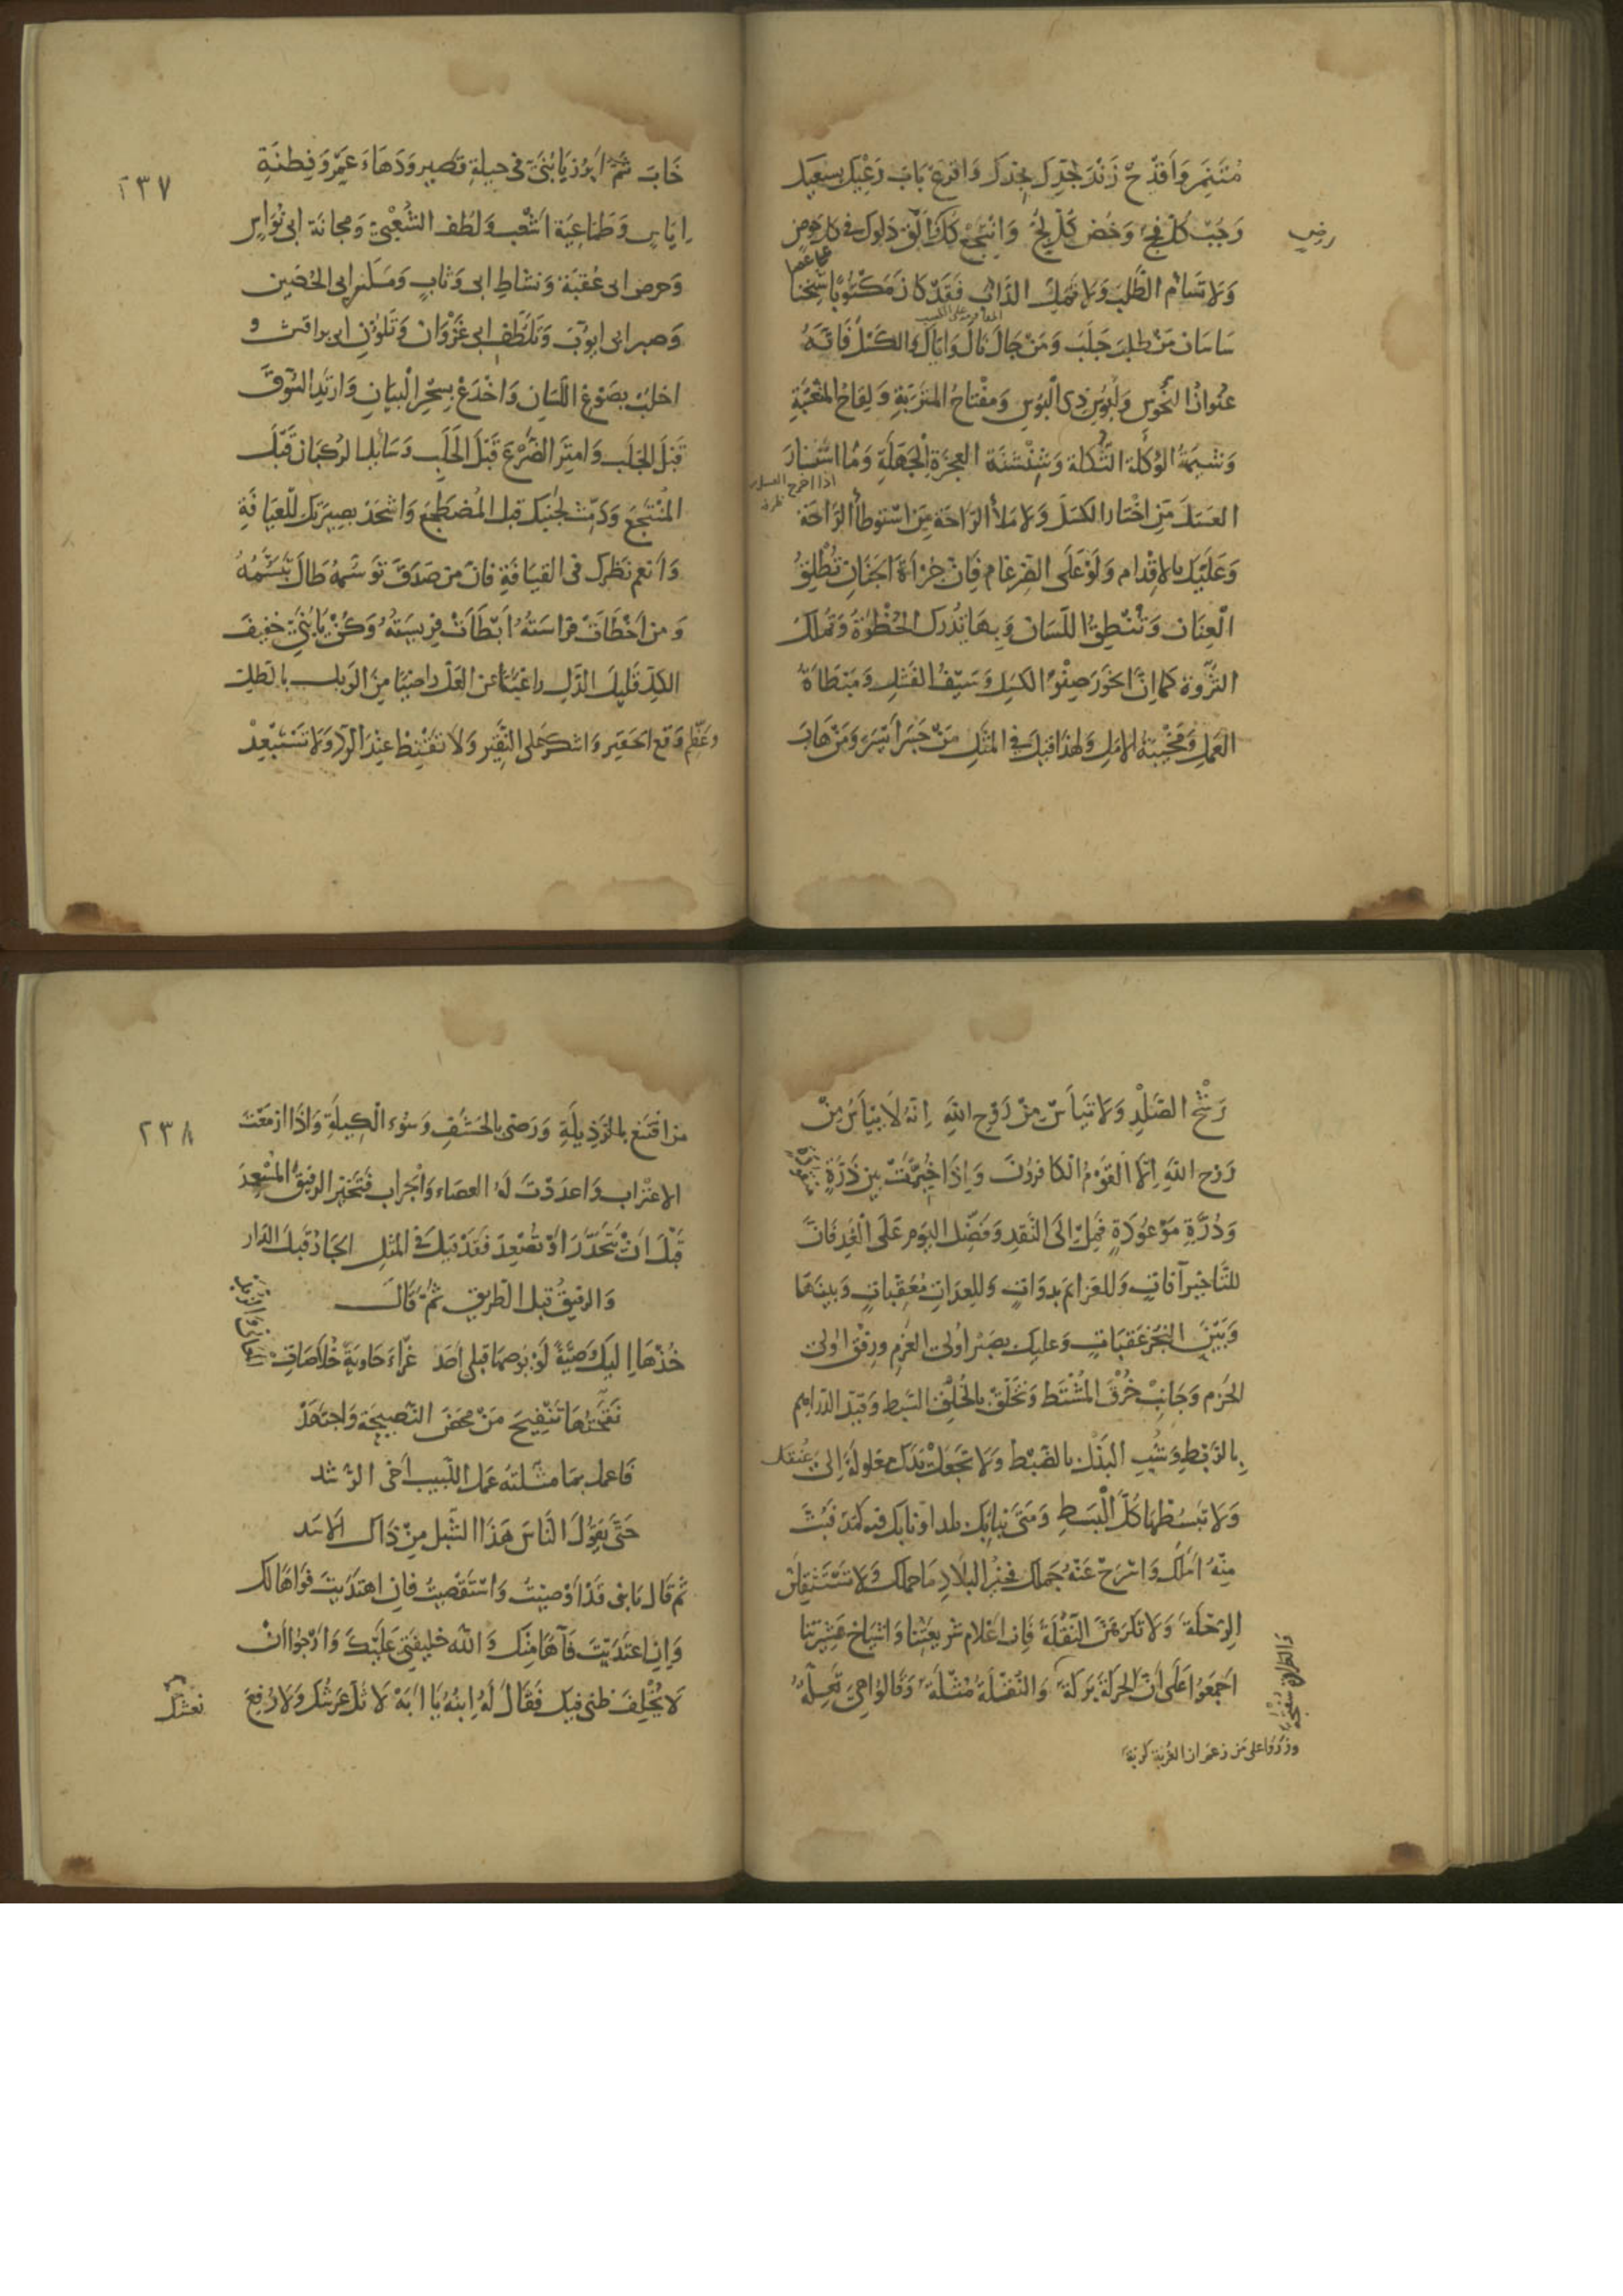 مُتَنَمِّر وَأَقْدَحْ زَنْدَ جُدِّكَ بِجِدِّكَ وَاقْرَعْ بَابَ رَعْيِكَ بِسَعْيِكَ
وَجُبْ كُلَّ فَجٍّ وَخُضْ كُلَّ لُجٍّ وَانْتَجِعْ كُلَّ وَأَلْقِ دَلْوَكَ فِى كُلِّ حَوْضٍ
رضٍ
وَلَا تَسْأَمِ الطَّلَبَ وَلَا تَمَلَّ الدَّأْبَ فَقَدْ كَانَ مَكْتُوبًا شَيْخِنَا
على عصا
سَاسَانَ مَنْ طَلَبَ جَلَبَ وَمَنْ جَالَ نَالَ وَإِيَّاكَ وَالكَسَلَ فَإِنَّهُ
عُنْوَانُ النُّحُوسِ وَلَبُوسُ ذِى الْبُوسِ وَمِفْتَاحُ المَتْرَبَةِ وَلِقَاحُ المَتْعَبَةِ
وَشِيمَةُ الوُكَلَةِ التُّكَلَةِ وَشِنْشِنَةُ العَجَزَةِ الجَهَلَةِ وَمَا اشْتَارَ
اذا اخرج العسل
العَسَلَ مَنِ اخْتَارَ الكَسَلَ وَلَا مَلَأَ الرَّاحَةَ مَنِ اسْتَوْطَأَ الرَّاحَةَ
وَعَلَيْكَ بِالإِقْدَامِ وَلَوْ عَلَى الضِّرْغَامِ فَإِنَّ جُرْأَةَ الجَنَانِ تُطْلِقُ
الْعِنَانَ وَتُنْطِقُ اللِّسَانَ وَبِهَا تُدْرَكُ الحُظْوَةُ وَتُمْلَكُ
الثَّرْوَةُ كَمَا إِنَّ الخَوَرَ صِنْوُ الكَسَلِ وَسَبَبُ الفَشَلِ وَمَبْطَأَةٌ
العَمَلِ وَمَخْيَبَةُ الأَمَلِ وَلِهَذَا قِيلَ فِى المَثَلِ مَنْ جَسَرَ أَيْسَرَ وَمَنْ هَابَ
٢٣٧
خَابَ ثُمَّ ابْرُزْ يَا بُنَىَّ فِى حِيلَةِ قَصِيرٍ وَدَهَاءِ عَمْرٍو وَفِطْنَةِ
اِيَاسٍ وَطَمَاعِيَةِ أَشْعَبَ وَلُطْفِ الشَّعْبِىِّ وَمَجَانَةِ ابى نُوَاسٍ
وَحِرْصِ ابى عُقْبَةَ وَنَشَاطِ ابى وَثَّابٍ وَمَكْرِ ابى الحُصَيْنِ
وَصبر ابى ايوبَ وَتَلَطُّفِ ابى غَزْوَانَ وَتَلَوُّنِ ابى براقش و
اخلبْ بِصَوْغِ اللِّسَانِ وَاخْدَعْ بِسِحْرِ الْبَيَانِ وَارْتَدِ السُّوقَ
قَبْلَ الجَلَبِ وَامْتَرِ الضَّرْعَ قَبْلَ الْحَلَبِ وَسَائِلِ الرُّكْبَانَ قَبْلَ
المُنْتَجَعِ وَدَمِّثْ لِجَنْبِكَ قبل المُضْطَجَعِ وَاشْحَذْ بَصِيرَتَكَ لِلْعِيَافَةِ
وَأَنعِم نَظَرَكَ فِى القِيَافَةِ فَانَّ مَن صَدَقَ تَوَسُّمُهُ طَالَ تَبَسُّمُهُ
وَمن أَخْطَأَتْ فِرَاسَتُهُ ابْطَأَتْ فَرِيسَتُهُ وَكُنْ يَا بُنَىَّ خَفِيفَ
الكَلِّ قَلِيلَ الدَّلِّ راغبًا عَن العَلِّ راضيًا مِنَ الوَبْلِ بِالطَّلِّ
وعَظِّمْ وَقْعَ الحَقِيرِ وَاشكُرْ عَلَى النَّقِيرِ وَلَا تَقْنَطْ عِنْدَ الرَّدِّ وَلَا تَسْتَبْعِدْ
رَشْحَ الصَّلْدِ وَلَا تَيْأَسْ مِنْ رَوْحِ اللهِ اِنَّهُ لَا يَيْأَسُ مِنْ
رَوْحِ اللهِ اِلَّا الْقَوْمُ الْكَافِرُونَ وَإِذَا خُيِّرْتَ بَيْنَ ذَرَّةٍ
وَدُرَّةٍ مَوْعُودَةٍ فَمِلْ إِلَى النَّقْدِ وَفَضِّلِ اليَوْمَ عَلَى الْغَدِ فَانَّ
للتَّاخِيرِ آفَاتٍ وَلِلعَزَائِم بَدَوَاتٍ وَلِلعِدَاتِ مُعَقِّبَاتٍ وَبَيْنَهَا
وَبَيْنَ النَّجْزِ عَقَبَاتٍ وَعَلَيْكَ بِصَبْرِ أُولِى العَزْمِ وَرِفْقِ اُولِى
الحَزْمِ وَجَانِبْ خُرْقَ المُشْتَطِّ وَتَخَلَّقْ بِالْخُلُقِ السَّبْطِ وَقَيِّدِ الدَّرَاهِم
بِالرَّبْطِ وَشُبِ البَذْلَ بِالضَّبْطِ وَلَا تَجْعَلْ يَدَكَ مَغْلُولَةً إِلَى عُنُقِكَ
وَلَا تَبْسُطْهَا كُلَّ الْبَسْطِ وَمَتَى نَبَا بِكَ بلد او نابك فيه كمَد فَبُتَّ
مِنْهُ امَلَكَ وَاسْرَحْ عَنْهُ جَمَلَكَ فَخَيْرُ البِلَادِ مَا حملك وَلَا تَسْتَثْقِلَنَّ
الرِّحْلَةَ وَلَا تَكْرَهَنَّ النُّقْلَةَ فَإِنَّ اعْلَامَ شَرِيعَتِنَا وَاشْيَاخَ عَشِيرَتِنَا
اجْمَعُوا عَلَى أَنَّ الحَرَكَةَ بَرَكَةٌ وَالطراوة سُفْتَجَة
وَقَالُوا هِىَ تَعِلَّةُ
وزَرَوْا على مَن زعَمَ ان الغُربَةَ كُربَةٌ
٢٣٨
مَنِ اقْتَنَعَ بِالرَّذِيلَةِ وَرَضِىَ بِالحَشَفِ وَسُوءِ الْكِيلَةِ وَإِذَا ازْمَعْتَ
الاغْتِرَابَ وَاعدَدْتَ لَهُ العصاءَ وَالْجِرَابَ فَتَخَيَّرِ الرفيقَ المُسْعِدَ
قَبْلَ انْ تَتَحَدَّرَ اوْ تُصْعِدَ فَقَدْ قِيلَ فِى المَثَلِ الجَارُ قَبْلَ الدَّارِ
وَالرفيقُ قَبل الطَّرِيقِ ثُمَّ قَالَ
خُذْهَا إِلَيْكَ وَصِيَّةً لَمْ يُوصِهَا قَبْلِى أَحَدْ غَرَّاءَ حَاوِيَةً خُلَاصَاتِ
نَقَّحْتُهَا تَنْقِيحَ مَنْ مَحَضَ النَّصِيحَةَ وَاجتَهَدْ
فَاعمل بِمَا مَثَّلتُهُ عَمَلَ اللَّبِيبِ أَخِى الرَّشَد
حَتَّى يَقُولَ النَّاسُ هَذَا الشِّبْل مِنْ ذَاكَ الاسَد
ثُمَّ قَالَ يَا بنى قَدْ أَوْصَيْتُ وَاسْتَقْصَيْتُ فَإِنِ اهتَدَيتَ فَوَاهَا لَكَ
وَإِنِ اعْتَدَيْتَ فَآهَا مِنْكَ وَاللهُ خَلِيفَتِى عَلَيْكَ وَارْجُوا انْ
لَا يُخْلِفَ ظَنِّى فِيكَ فَقَالَ لَهُ ابنُهُ يَا ابَهْ لَا ثُلَّ عَرْشُكَ وَلَا رُفِعَ
نعشك